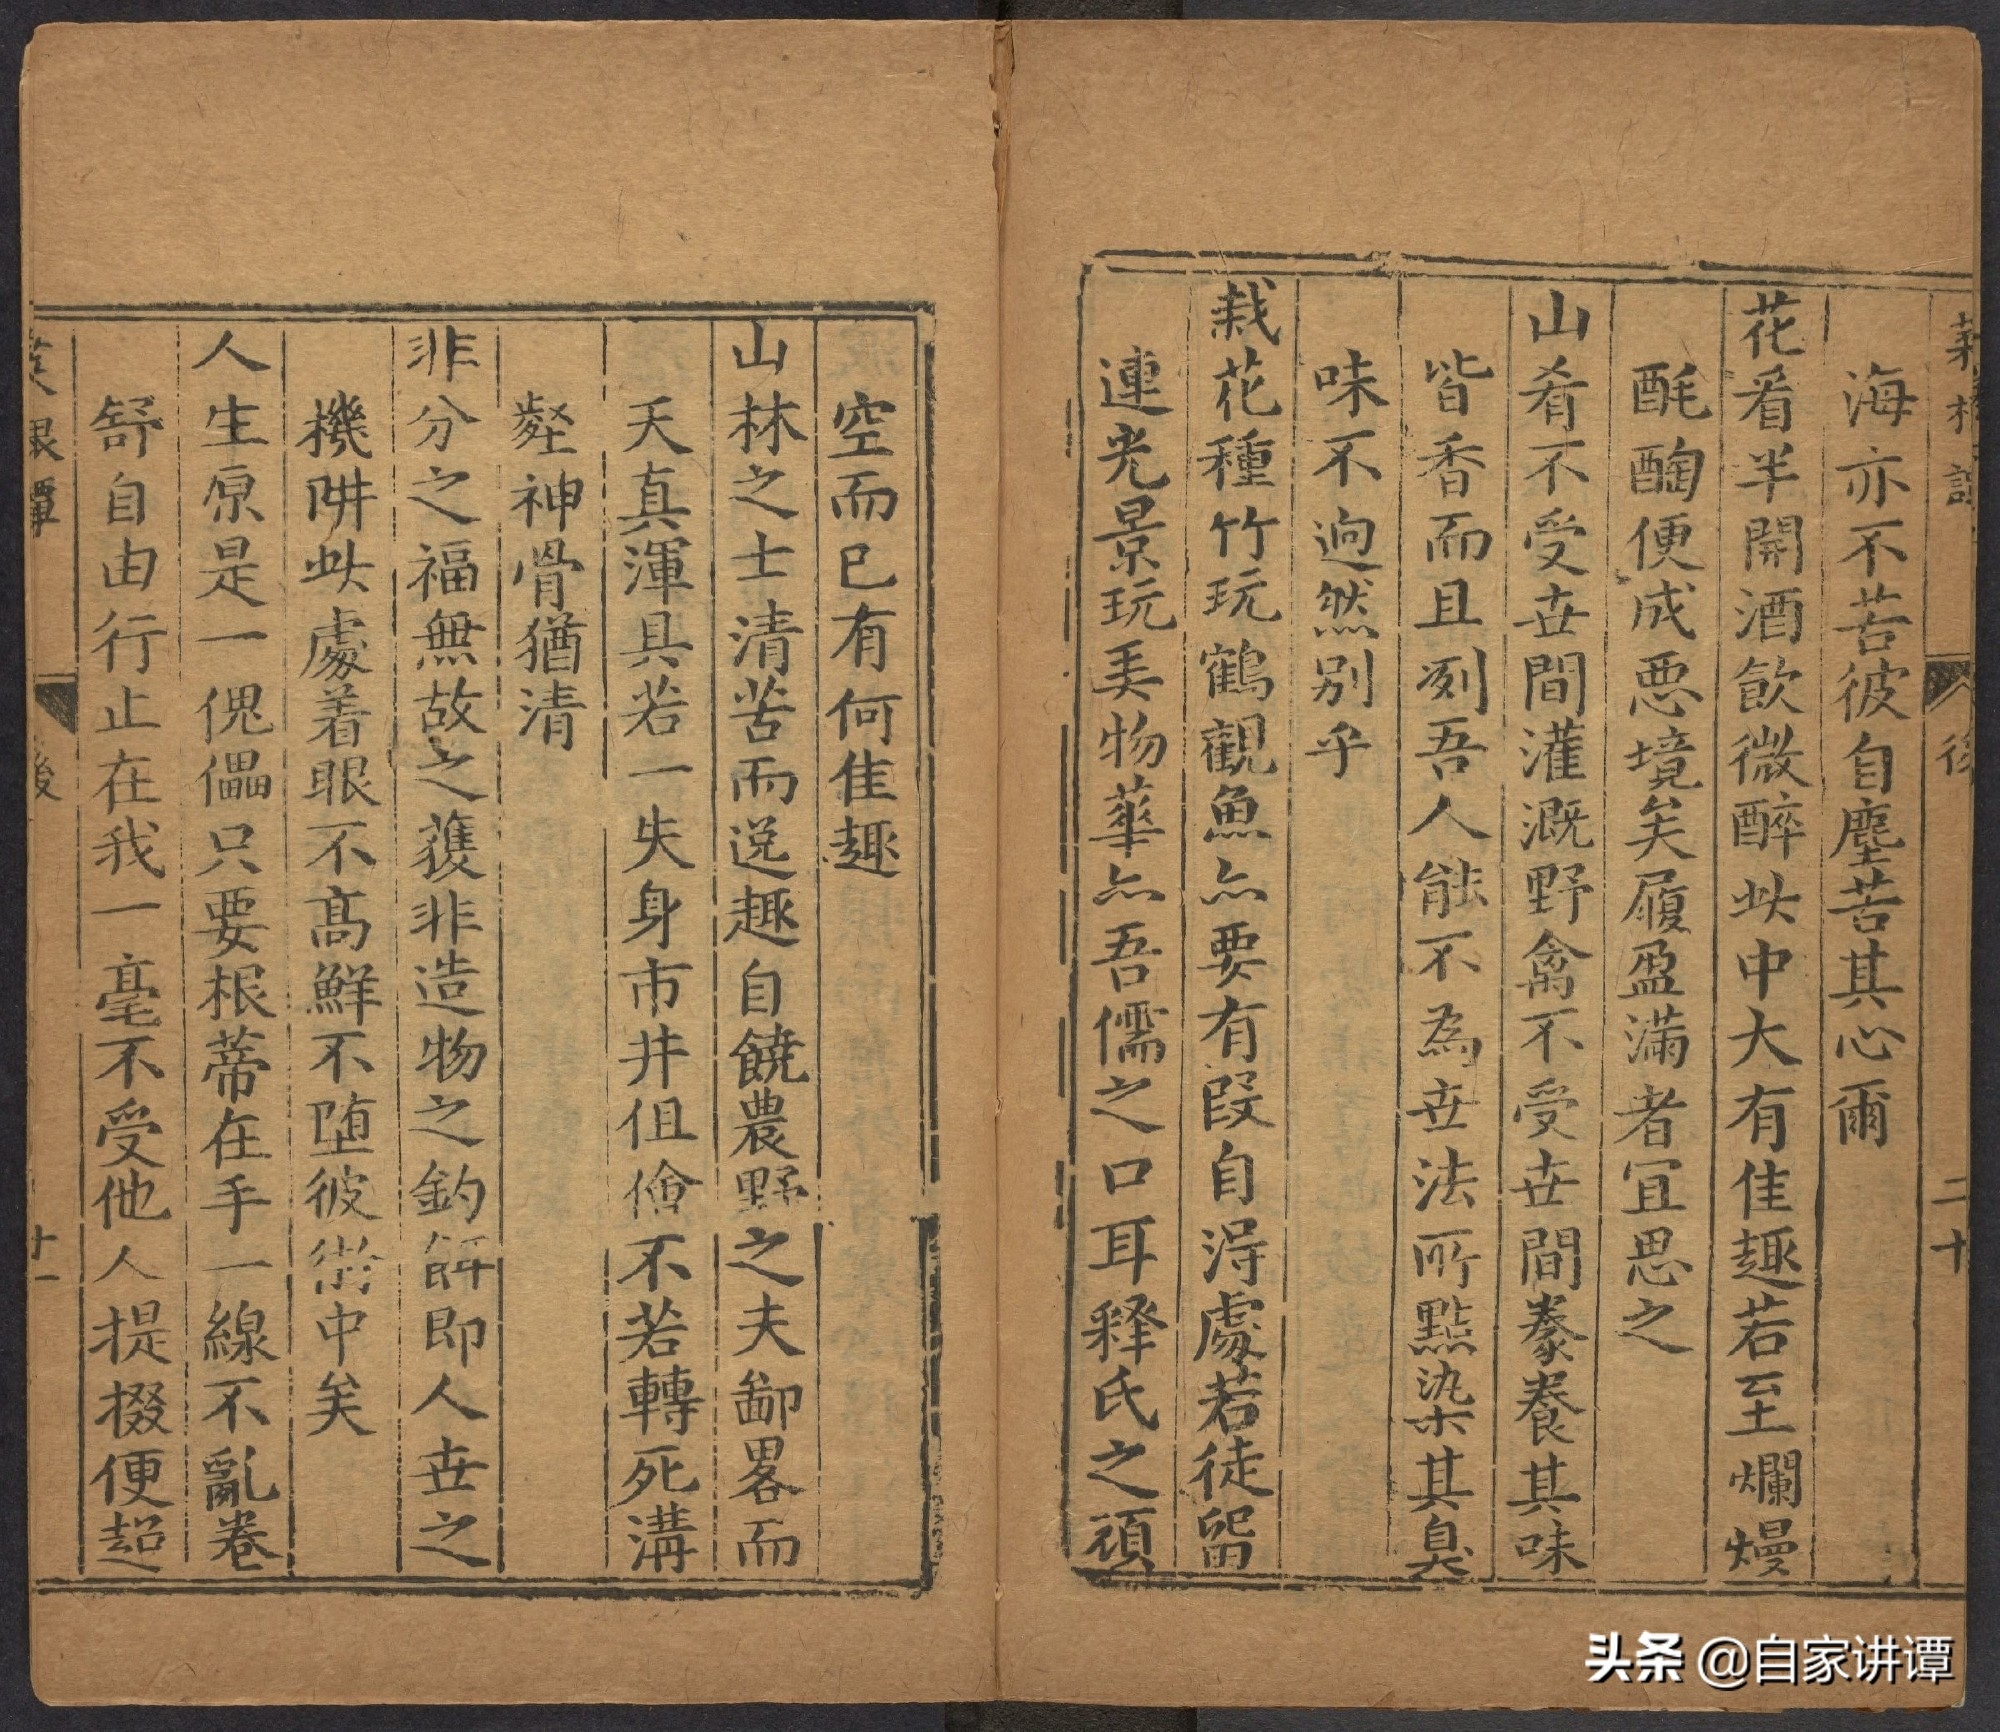 菜根譚 後 二十
海亦不苦彼自塵苦其心爾
花看半開酒飲微醉此中大有佳趣若至爛熳
酕醄便成惡境矣履盈滿者宜思之
山肴不受世間灌溉野禽不受世間豢養其味
皆香而且冽吾人能不為世法所點染其臭
味不逈然別乎
栽花種竹玩鶴觀魚亦要有段自淂處若徒留
連光景玩美物華亦吾儒之口耳釋氏之頑
空而已有何佳趣
山林之士清苦而逸趣自饒農野之夫鄙畧而
天真渾具若一失身市井伹儈不若轉死溝
壑神骨猶清
非分之福無故之獲非造物之釣餌即人世之
機阱此處着眼不高鮮不墮彼術中矣
人生原是一傀儡只要根蒂在手一線不亂卷
舒自由行止在我一毫不受他人提掇便超
菜根譚 後 廿一
头条 @自家讲谭